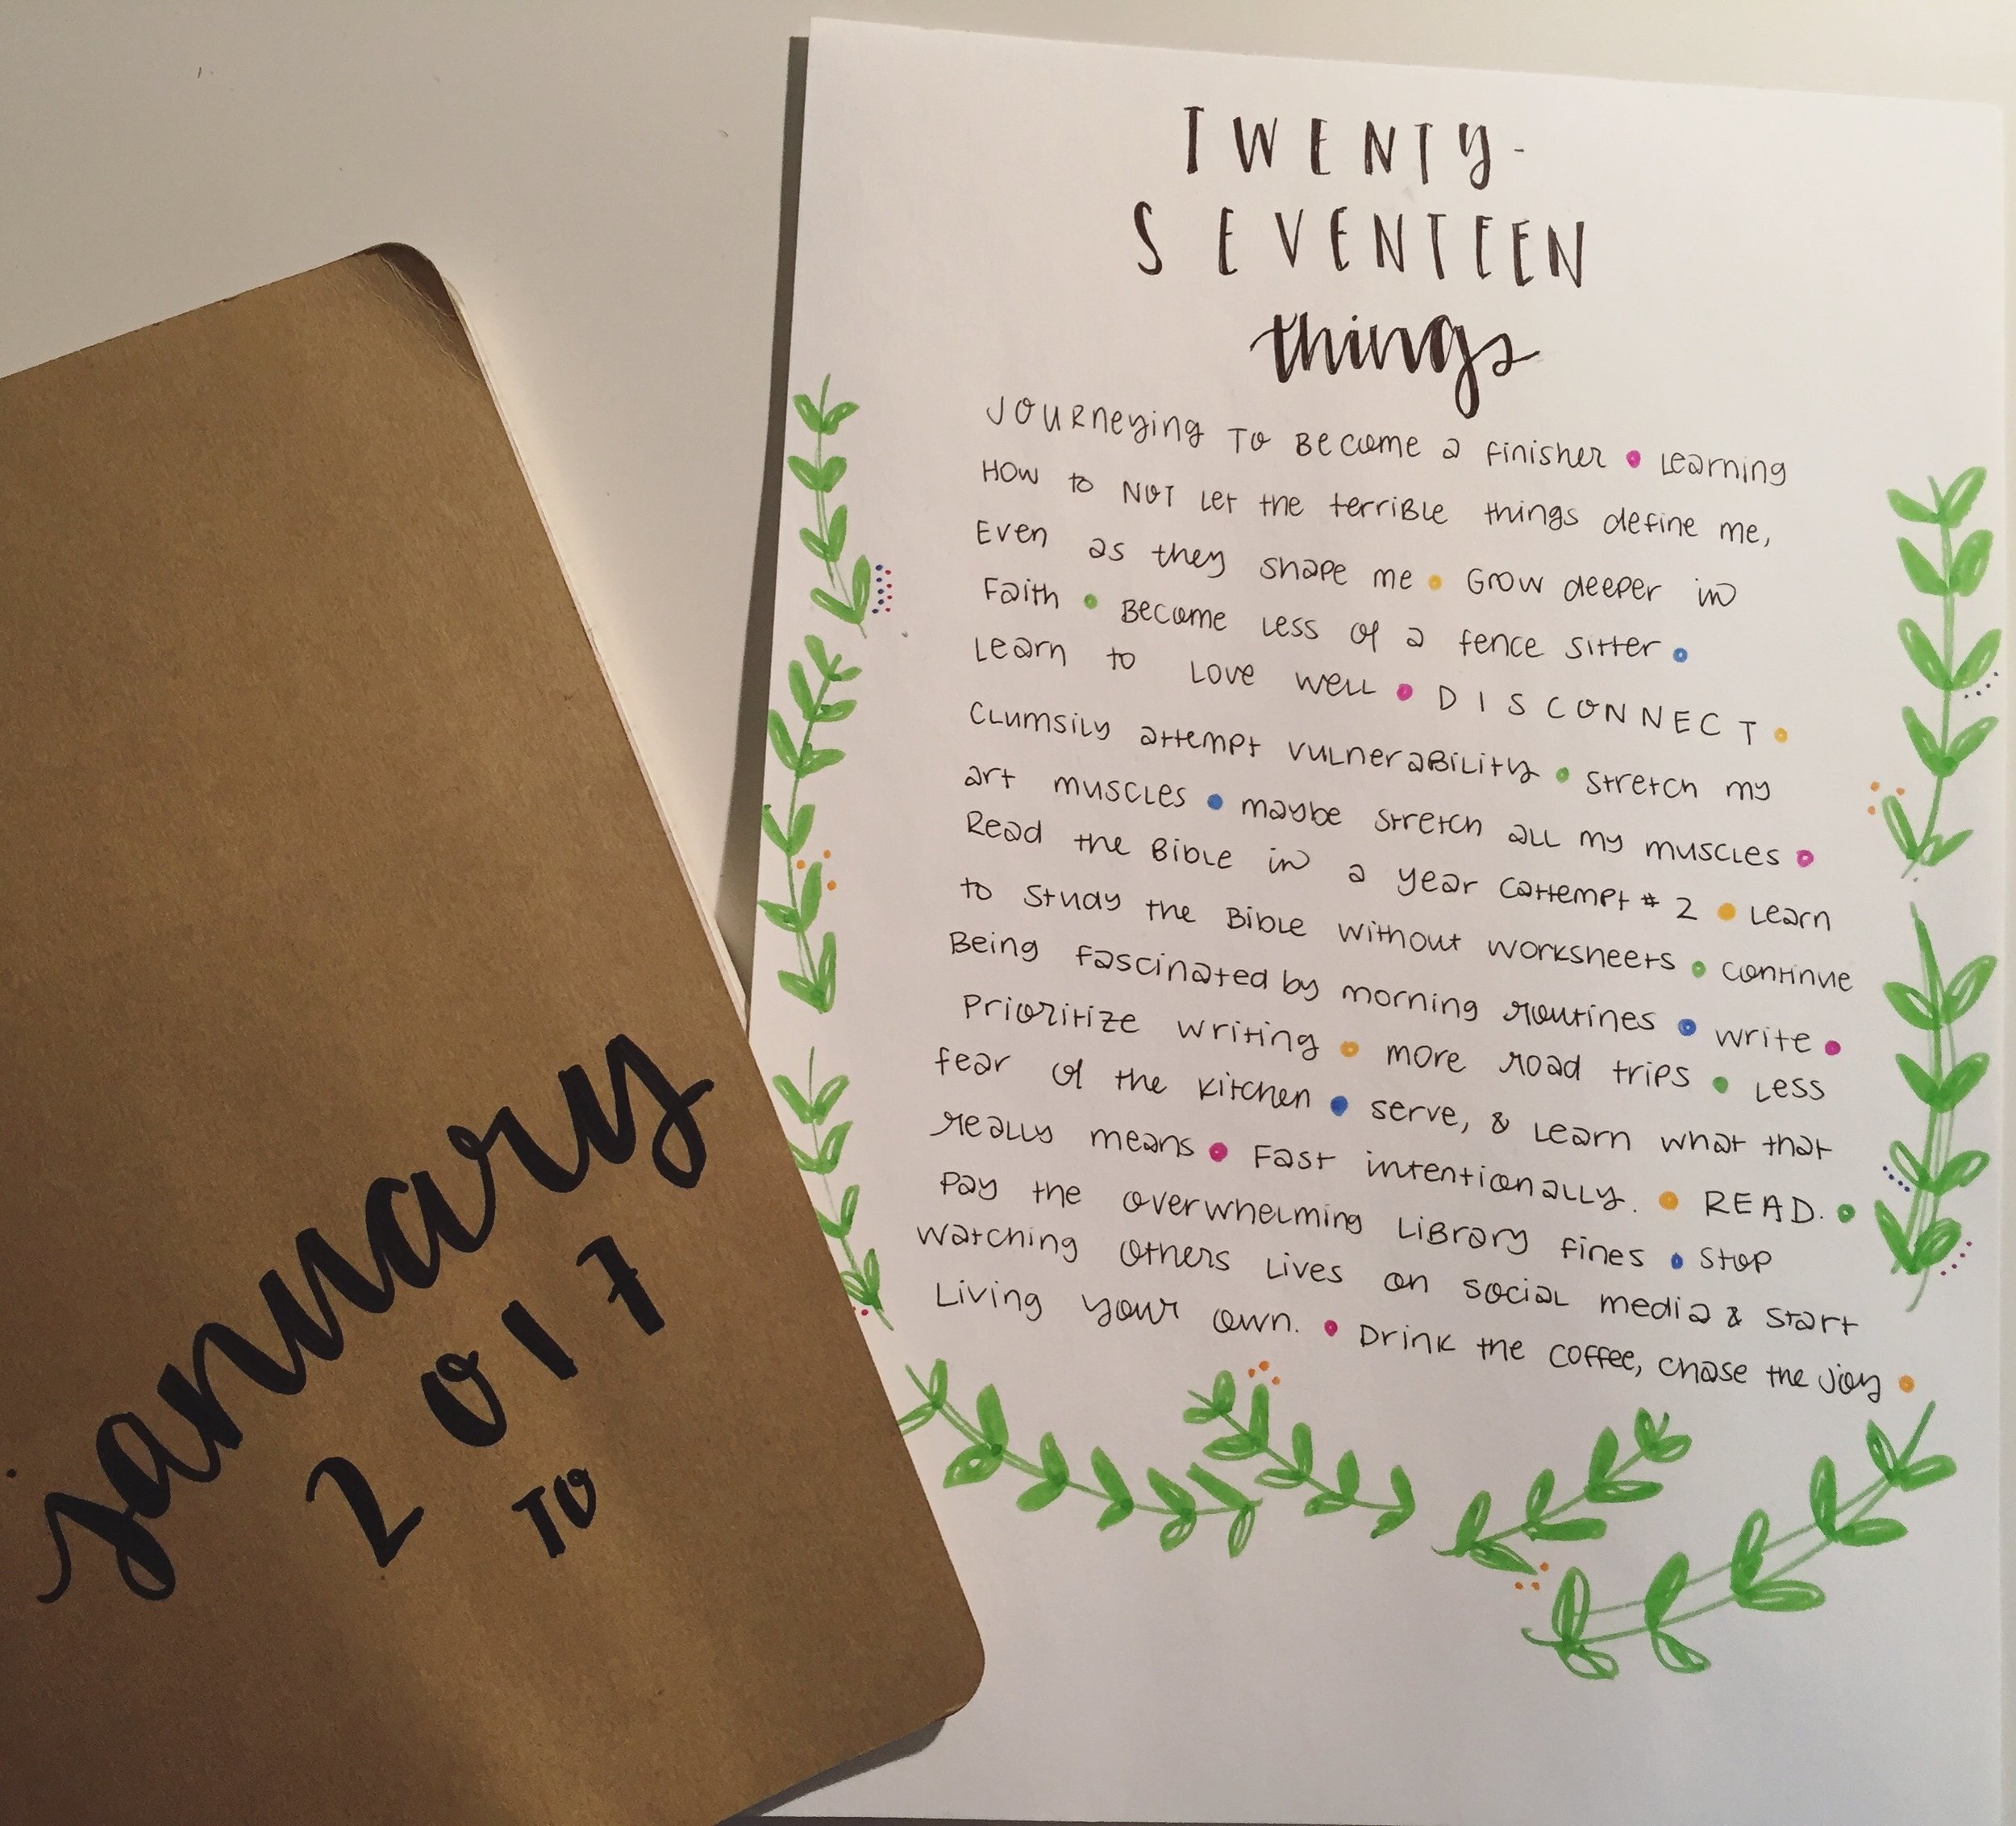 January
2017
TO
TWENTY-
SEVENTEEN
things
Journeying to become a finisher • Learning
How to NOT Let the terrible things define me,
Even as they shape me • Grow deeper in
Faith • Become Less of a fence sitter •
Learn to Love well • DISCONNECT •
Clumsily attempt vulnerability • stretch my
art muscles • maybe stretch all my muscles •
Read the Bible in a year (attempt # 2 • Learn
to study the Bible without worksheets • continue
Being fascinated by morning routines • write •
Prioritize writing • more road trips • Less
fear of the kitchen • serve, & Learn what that
really means • Fast intentionally. • READ. •
Pay the overwhelming Library fines • Stop
watching others Lives on social media & start
Living your own. • Drink the coffee, chase the joy •